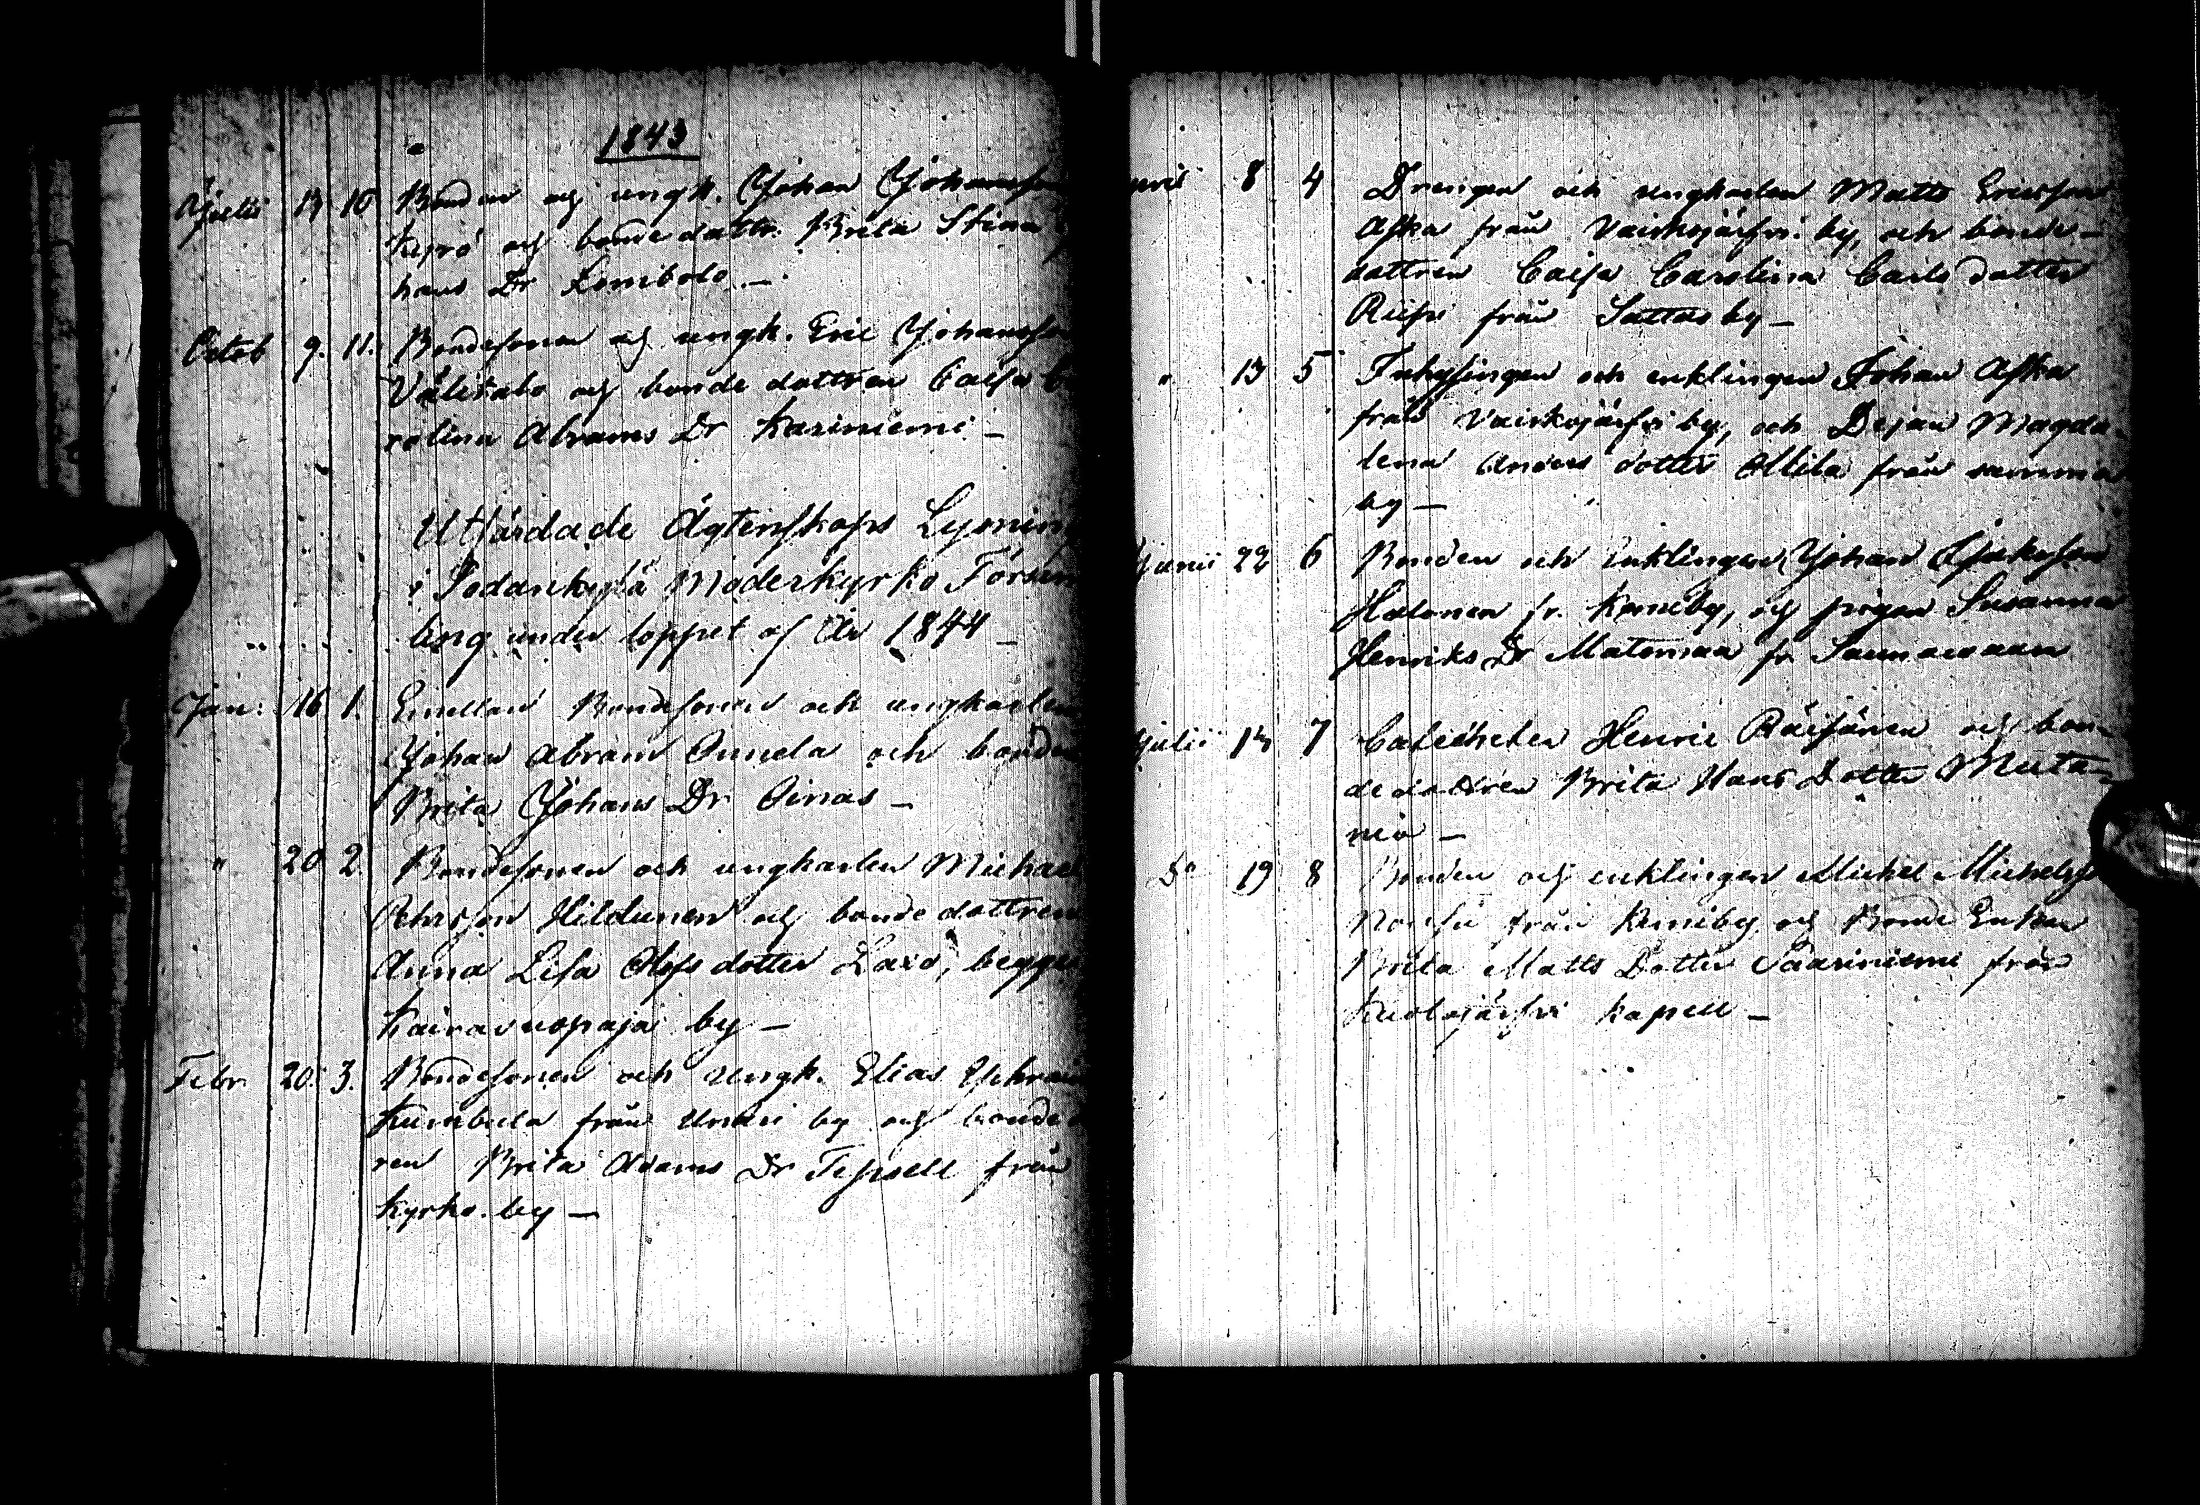 1843
Julii 13 10 Bonden och ungk. Johan Johansson
Kyrö och bondedottr. Brita Stina
hans Dr Kombolo —
Octob 9. 11. Bondesonen och ungk. Eric Johansson
Välitalo och bonde dottren Caisa Ca
rolina Abrams Dr Kariniemi —
Utfärdade Ägtenskaps Lysning
i Sodankylä Moderkyrko Försam
ling under loppet af År 1844 —
Jan: 16 1. Emellan Bondesonen och ungkarlen
Johan Abram Onnela och bonde
Brita Johans Dr Oinas —
" 20 2. Bondesonen och ungkarlen Michael
Hildunen och bonde dottren
Anna Lisa Olofs dotter Laxo, begge
Kairavuopaja by —
Febr. 20. 3. Bondesonen och Ungk. Elias Ephraim
Kumbula från Unari by och bonde
ren Brita Adams Dr Tepsell från
Kyrko. by —
8 4 Drengen och ungkarlen Matts Ericsson
Aska från Vaiskojärfvi by, och bonde-
dottren Caisa Carolina Carls dotter
Riipi från Sattas by —
" 13 5 Inhysingen och enklingen Johan Aska
från Vaiskojärfvi by, och Dejan Magda-
lena Anders dotter Ollila från samma
by —
Junii 22 6 Bonden och Enklingen Johan
Halonen fr. Kemiby, och pigan Susanna
Henriks Dr Matomaa fr
Julii 13 7 Catecheten Henric Räisänen och bon-
dedottren Brita Hans Dotter Muta-
nia —
Do 19 8 Bonden och enklingen Michel Michelss
från Kemiby och Bonde Enkan
Brita Matts Dotter Saariniemi från
Kuolajärfvi Kapell —